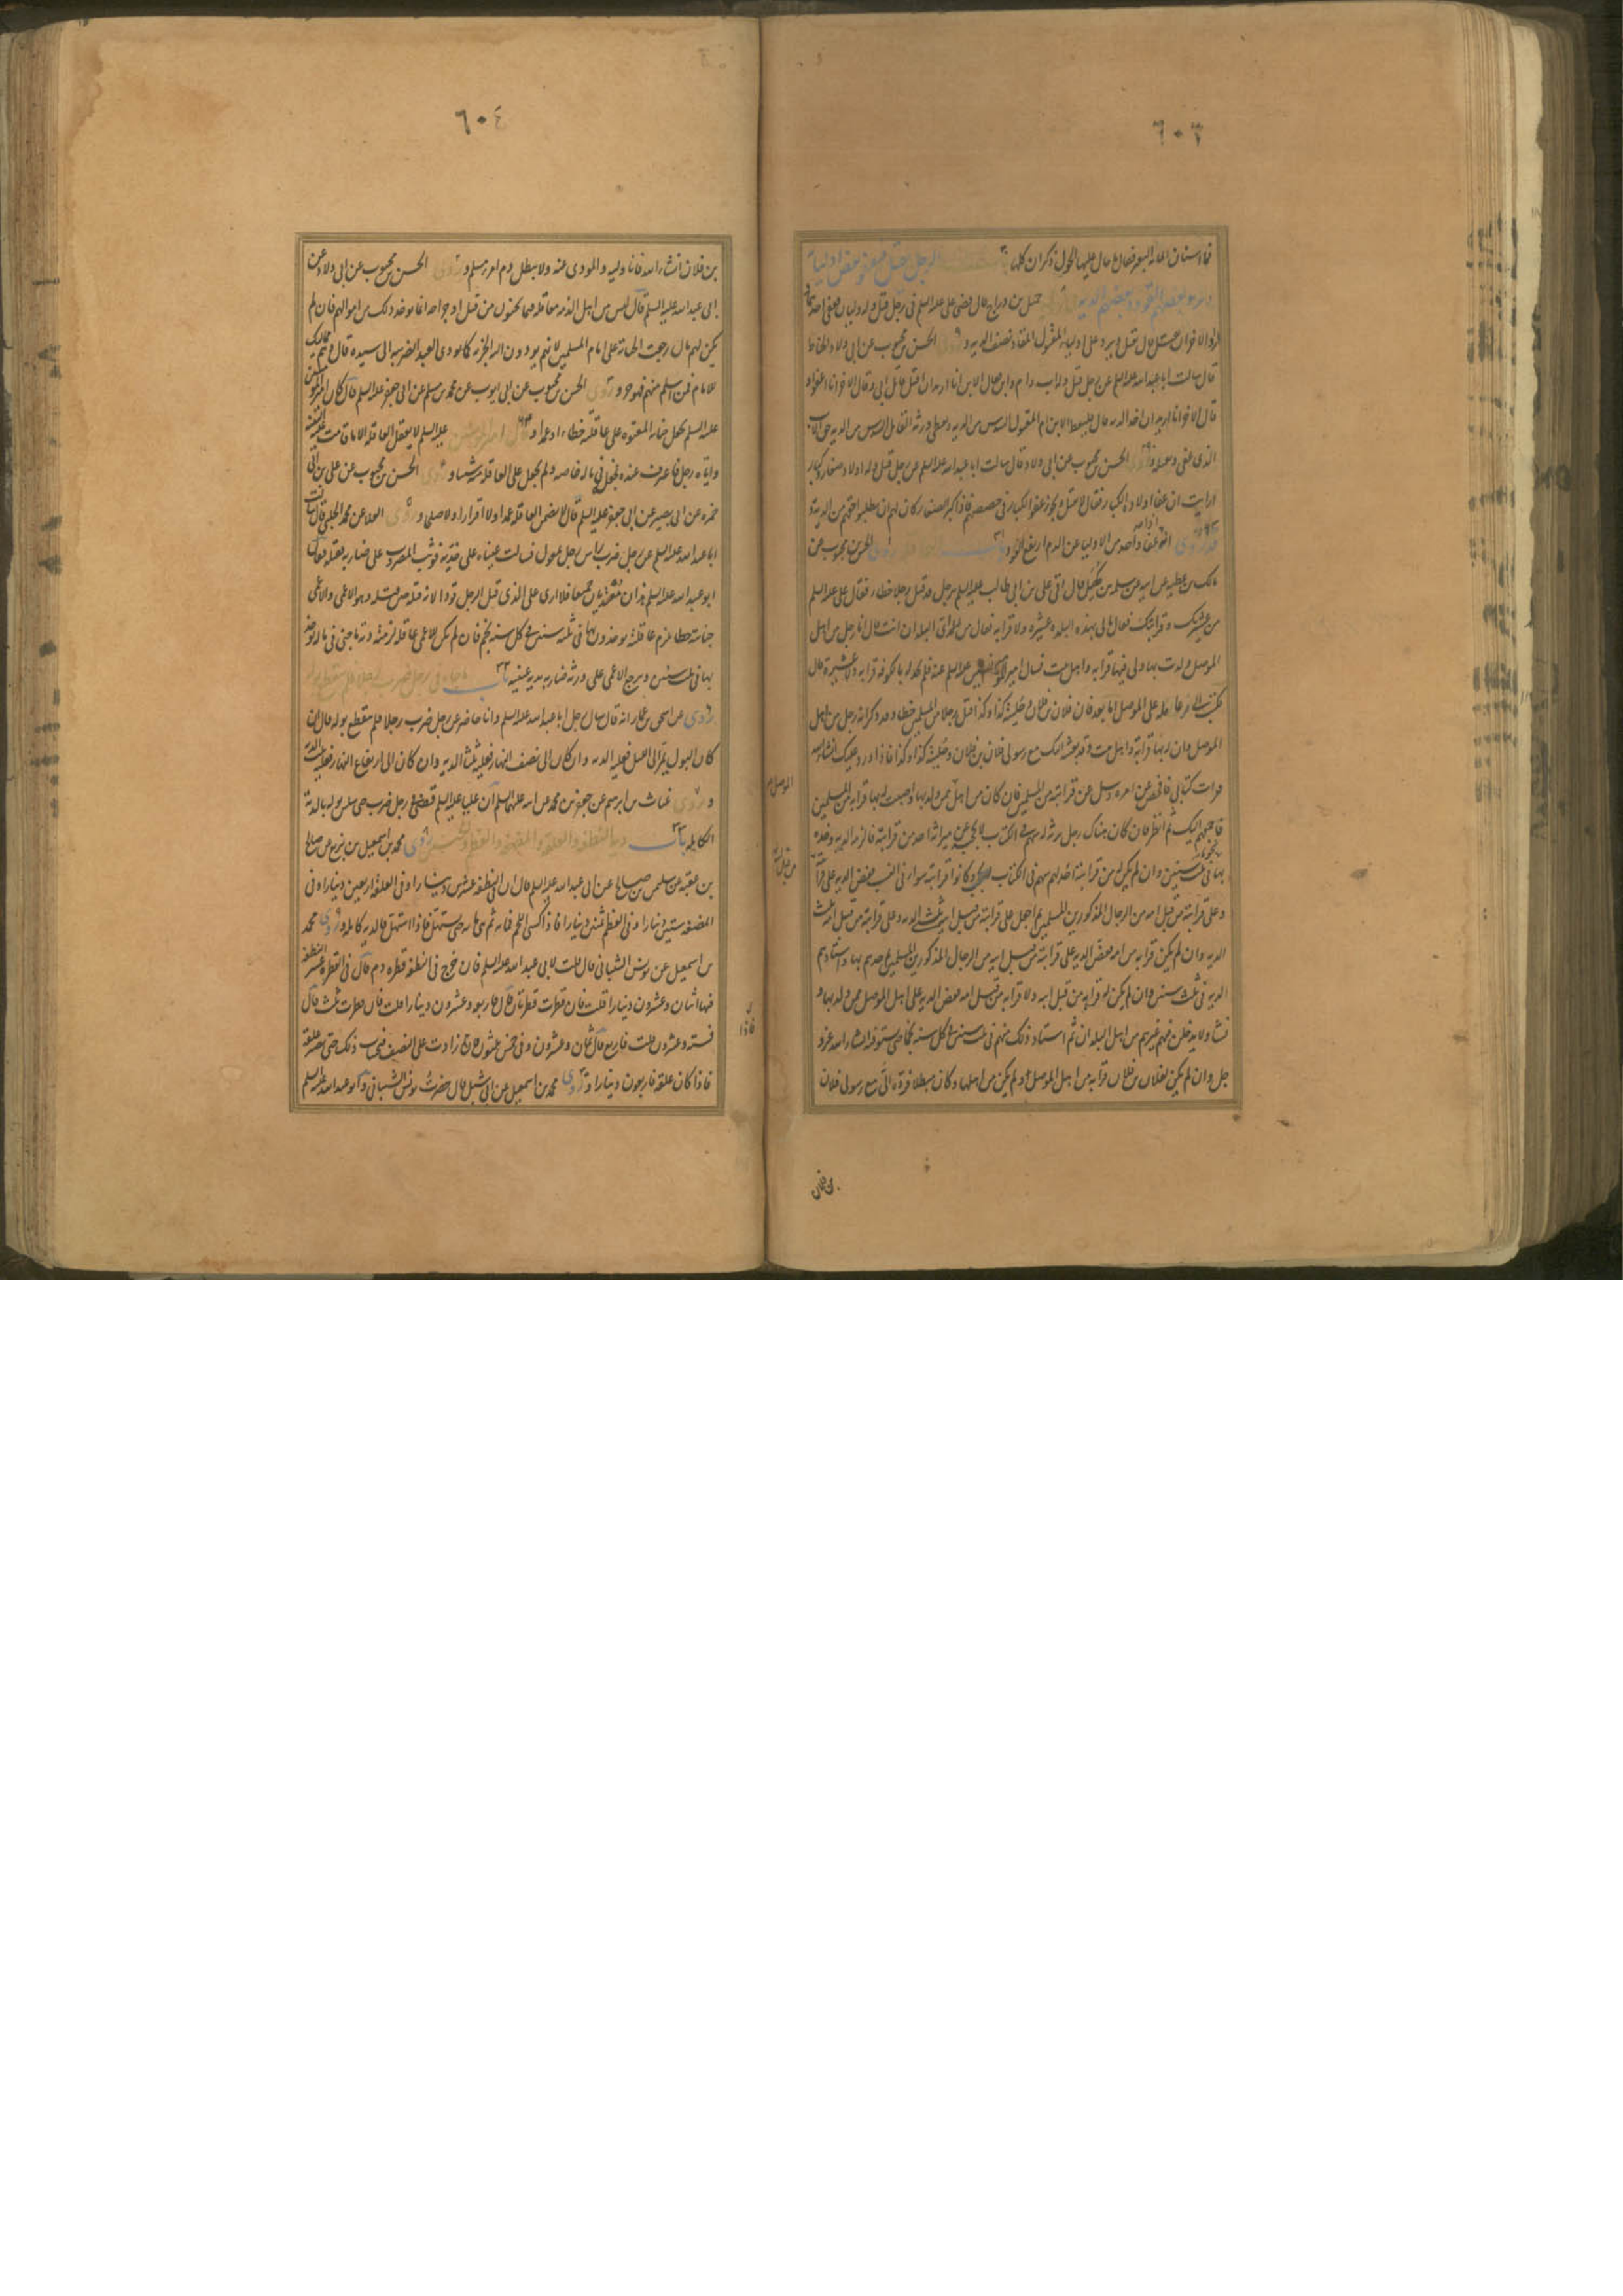 ٦٠٣
فما اسنان المائة البعير فقال ما حال عليها الحول ذكران كلها باب الرجل يقتل فيعفو بعض اوليائه
ويريد بعضهم القود وبعضهم الدية روى جميل بن دراج قال قضى علي عليه السلم في رجل قتل وله وليان فعفى احدهما
اراد الاخر ان يقتل قال يقتل ويرد على اولياء المقتول المقاد نصف الدية وروى الحسن بن محبوب عن ابي ولاد الحناط
قال سالت ابا عبد الله عليه السلم عن رجل قتل وله اب وام وابن فقال الابن انا اريد ان اقتل قاتل ابي وقال الاخر انا اعفو و
قال الاخر انا اريد ان اخذ الدية قال فليعط الابن ام المقتول السدس من الدية ويعطي ورثة القاتل السدس من الدية حق الاب
الذي عفى ويقتله وروى الحسن بن محبوب عن ابي ولاد قال سالت ابا عبد الله عليه السلم عن رجل قتل وله اولاد صغار وكبار
ارايت ان عفا اولاده الكبار فقال لا يقتل ويجوز عفو الكبار في حصصهم فاذا كبر الصغار كان لهم ان يطلبوا حقهم من الدية و
قد روى انه اذا عفا واحد من الاولياء عن الدم ارتفع القود باب العاقلة روى الحسن بن محبوب عن
مالك بن عطية عن ابيه عن سلمة بن كهيل قال اتي علي بن ابي طالب عليه السلم برجل قد قتل رجلا خطاء فقال علي عليه السلم
من عشيرتك وقرابتك فقال ما لي بهذه البلدة عشيرة ولا قرابة فقال من اي البلدان انت قال انا رجل من اهل
الموصل ولدت بها ولي فيها قرابة واهل بيت فسال امير المؤمنين عليه السلم عنه فلم يجد له بالكوفة قرابة ولا عشيرة قال
فكتب الى عامله على الموصل اما بعد فان فلان بن فلان وحليته كذا وكذا قتل رجلا من المسلمين خطاء وقد ذكر انه رجل من اهل
الموصل وان له بها قرابة واهل بيت وقد بعثت به اليك مع رسولي فلان بن فلان وحليته كذا وكذا فاذا ورد عليك انشاء الله
وقرات كتابي فافحص عن امره وسل عن قرابته من المسلمين فان كان من اهل ممن ولد بها واصبت له بها قرابة من المسلمين
الموصل
فاجمعهم اليك ثم انظر فان كان هناك رجل يرثه له سهم في الكتاب لا يحجبه عن ميراثه احد من قرابته فالزمه الدية وخذه
بها نجوما في ثلث سنين وان لم يكن له من قرابته احد له سهم في الكتاب وكانوا قرابته سواء في النسب ففض الدية على قرابته
من قبل ابيه
وعلى قرابته من قبل امه من الرجال المذكورين المسلمين ثم اجعل على قرابته من قبل ابيه ثلثي الدية وعلى قرابته من قبل امه ثلث
الدية وان لم يكن له قرابة من امه ففض الدية على قرابته من قبل ابيه من الرجال المذكورين المسلمين ثم خذهم بها واستادهم
الدية في ثلث سنين وان لم يكن له قرابة من قبل ابيه ولا قرابة من قبل امه ففض الدية على اهل الموصل ممن ولد بها و
نشأ ولا يدخلن فيهم غيرهم من اهل البلدان ثم استاد ذلك منهم في ثلث سنين في كل سنة نجما حتى تستوفيه انشاء الله عز و
جل وان لم يكن لفلان بن فلان قرابة من اهل الموصل ولم يكن من اهلها وكان مبطلا فرده الي مع رسولي فلان
بن فلان
٦٠٤
بن فلان انشاء الله فانا وليه والمودي عنه ولا يبطل دم امرء مسلم وروى الحسن بن محبوب عن ابي ولاد عن
ابي عبد الله عليه السلم قال ليس بين اهل الذمة معاقلة فيما يجنون من قتل او جراحة انما يوخذ ذلك من اموالهم فان لم
يكن لهم مال رجعت الجناية على امام المسلمين لانهم يودون اليه الجزية كما يودي العبد الضريبة الى سيده قال وهم مماليك
للامام فمن اسلم منهم فهو حر وروى الحسن بن محبوب عن ابي ايوب عن محمد بن مسلم عن ابي جعفر عليه السلم قال كان امير المؤمنين
عليه السلم يجعل جناية المعتوه على عاقلته خطاء او عمدا وقال امير المؤمنين عليه السلم لا يعقل العاقلة الا ما قامت عليه البينة
واتاه رجل فاعترف عنده فجعل في ماله خاصة ولم يجعل على العاقلة شيئا وروى الحسن بن محبوب عن علي بن ابي
حمزة عن ابي بصير عن ابي جعفر عليه السلم قال لا يضمن العاقلة عمدا ولا اقرارا ولا صلحا وروى العلا عن محمد الحلبي قال سالت
ابا عبد الله عليه السلم عن رجل ضرب راس رجل بمعول فسالت عيناه على خديه فوثب المضروب على ضاربه فقتله فقال
ابو عبد الله عليه السلم هذان متعديان جميعا فلا ارى على الذي قتل الرجل قودا لانه قتله حين قتله وهو اعمى والاعمى
جنايته خطا يلزم عاقلته يوخذون بها في ثلثة سنين في كل سنة نجم فان لم يكن للاعمى عاقلة لزمته دية ما جنى في ماله يوخذ
بها في ثلث سنين ويرجع الاعمى على ورثة ضاربه بدية عينيه باب ما جاء في رجل ضرب رجلا فلم ينقطع بوله
روى عن اسحق بن عمار انه قال سال رجل ابا عبد الله عليه السلم وانا حاضر عن رجل ضرب رجلا فلم ينقطع بوله قال ان
كان البول يمر الى الليل فعليه الدية وان كان الى نصف النهار فعليه ثلثا الدية وان كان الى ارتفاع النهار فعليه ثلث الدية
وروى غياث بن ابرهيم عن جعفر بن محمد عن ابيه عليهما السلم ان عليا عليه السلم قضى في رجل ضرب حتى سلس بوله بالدية
الكاملة باب دية النطفة والعلقة والمضغة والعظم والجنين روى محمد بن اسمعيل بن بزيع عن صالح
بن عقبة عن سليمن بن صالح عن ابي عبد الله عليه السلم قال ان في النطفة عشرين دينارا وفي العلقة اربعين دينارا وفي
المضغة ستين دينارا وفي العظم ثمنين دينارا فاذا كسي اللحم فماية ثم هي ماية حتى يستهل فاذا استهل فالدية كاملة وروى محمد
بن اسمعيل عن يونس الشيباني قال قلت لابي عبد الله عليه السلم فان خرج في النطفة قطرة دم قال في القطرة عشر النطفة
فيها اثنان وعشرون دينارا قلت فان قطرت قطرتان قال فاربعة وعشرون دينارا قلت فان قطرت ثلث قال
فستة وعشرون قلت فاربع قال ثمان وعشرون وفي خمس ثلثون وما زادت على النصف فبحساب ذلك حتى تصير علقة
فاذا
فاذا كان علقة فاربعون دينارا وروى محمد بن اسمعيل عن ابي شبل قال حضرت يونس الشيباني وابو عبد الله عليه السلم